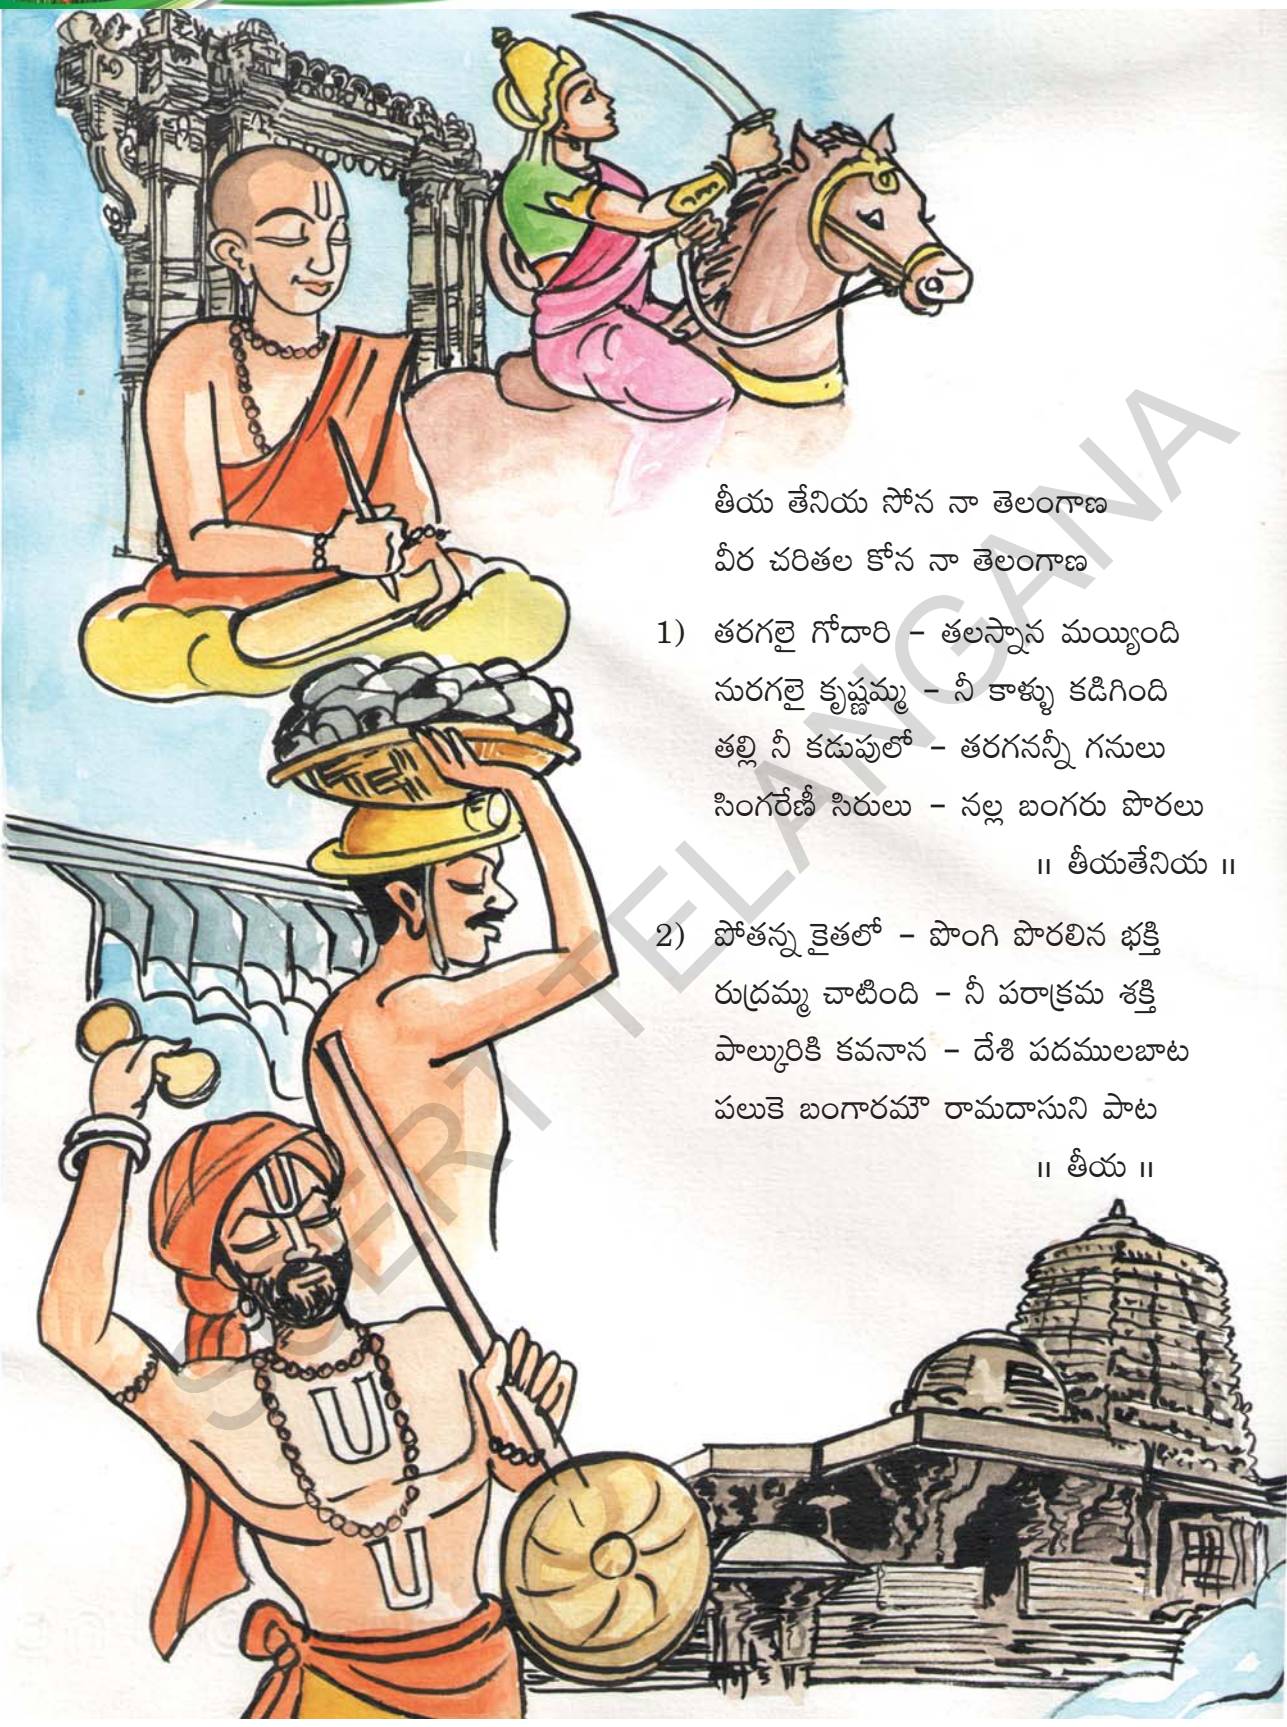 తీయ తేనియ సోన నా తెలంగాణ
వీర చరితల కోన నా తెలంగాణ
1) తరగలై గోదారి – తలస్నాన మయ్యింది
నురగలై కృష్ణమ్మ – నీ కాళ్ళు కడిగింది
తల్లి నీ కడుపులో – తరగనన్నీ గనులు
సింగరేణీ సిరులు – నల్ల బంగరు పొరలు
॥ తీయతేనియ ॥
2) పోతన్న కైతలో – పొంగి పొరలిన భక్తి
రుద్రమ్మ చాటింది – నీ పరాక్రమ శక్తి
పాల్కురికి కవనాన – దేశి పదములబాట
పలుకె బంగారమౌ రామదాసుని పాట
॥ తీయ ॥
SCERT TELANGANA